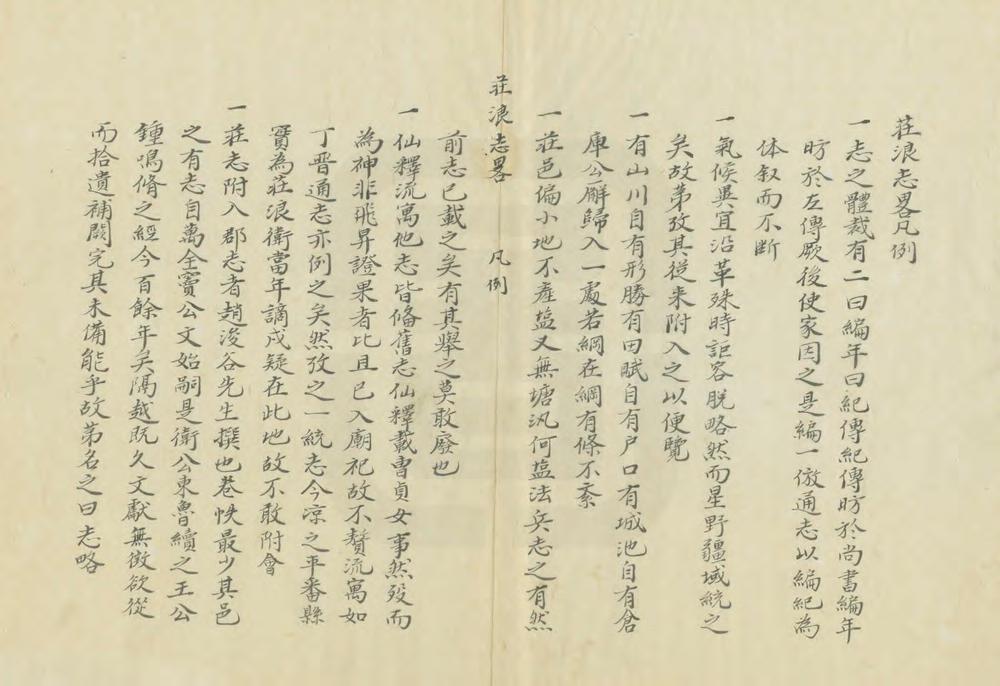 莊浪志畧凡例
一志之體裁有二曰編年曰紀傳紀傳昉於尚書編年
昉於左傳厥後使家因之是編一倣通志以編紀為
体叙而不断
一氣候異宜沿革殊時詎容脫略然而星野疆域統之
矣故苐攷其従来附入之以便覽
一有山川自有形勝有田賦自有户口有城池自有倉
庫公廨歸入一處若綱在綱有條不紊
一莊邑偏小地不產塩又無塘汛何塩法兵志之有然
莊浪志畧 凡例
前志已載之矣有其舉之莫敢廢也
一仙釋流寓他志皆俻舊志仙釋載曹貞女事然歿而
為神非飛昇證果者比且已入廟祀故不贅流寓如
丁晋通志亦例之矣然攷之一統志今凉之平番縣
實為莊浪衛當年謫戍疑在此地故不敢附會
一莊志附入郡志者趙浚谷先生撰也巻帙最少其邑
之有志自萬全竇公文始嗣是衛公東魯續之王公
鍾鳴脩之經今百餘年矣隔越既久文獻無徴欲從
而拾遺補闕完其未備能乎故苐名之曰志略